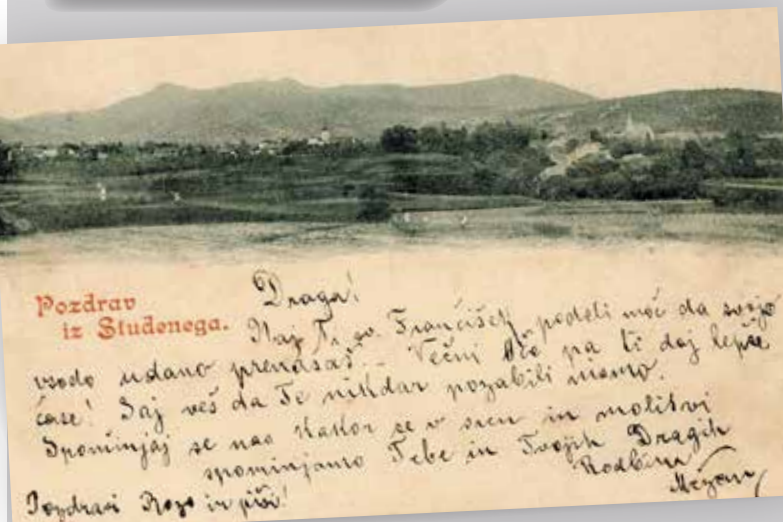 Pozdrav
iz Studenega.
Draga!
Naj Ti sv. Frančišek podeli moč da svojo
usodo udano prenašaš. Večni Oče pa ti daj lepše
čase! Saj veš da Te nikdar pozabili nismo.
Spominjaj se nas kakor se v srcu in molitvi
spominjamo Tebe in Tvojih Dragih
Rodbina
Pozdravi Rozo in piši!